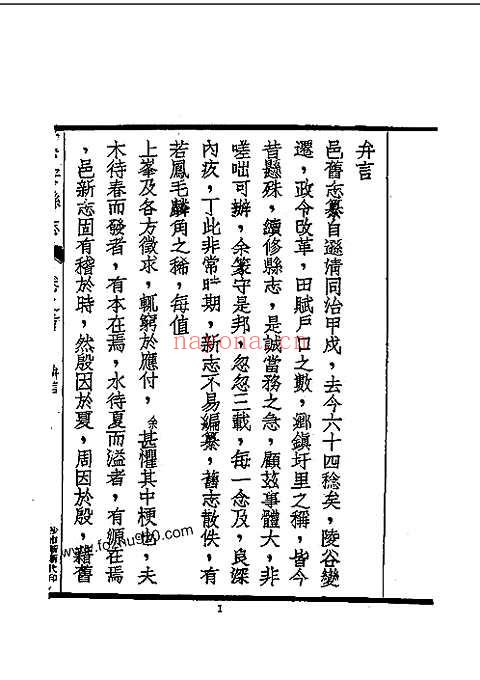 弁言
邑舊志纂自遜清同治甲戌，去今六十四稔矣，陵谷變
遷，政令改革，田賦戶口之數，鄉鎮圩里之稱，皆今
昔懸殊，續修縣志，是誠當務之急，顧茲事體大，非
嗟咄可辦，余篆守是邦，忽忽三載，每一念及，良深
內疚，丁此非常時期，新志不易編纂，舊志散佚，有
若鳳毛麟角之稀，每值
上峯及各方徵求，輒窮於應付，余甚懼其中梗也，夫
木待春而發者，有本在焉，水待夏而溢者，有源在焉
，邑新志固有稽於時，然殷因於夏，周因於殷，藉舊
弁言
1